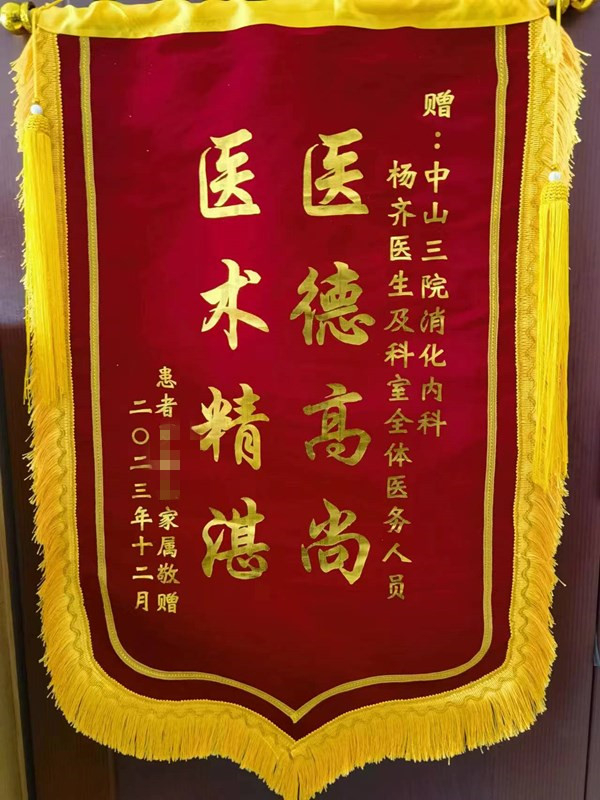 赠：中山三院消化内科
杨齐医生及科室全体医务人员
医德高尚
医术精湛
患者 家属敬赠
二〇二三年十二月